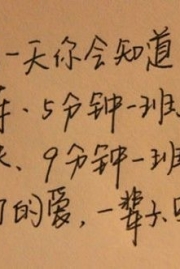 一天你会知道
5分钟一班
9分钟一班
的爱,一辈子